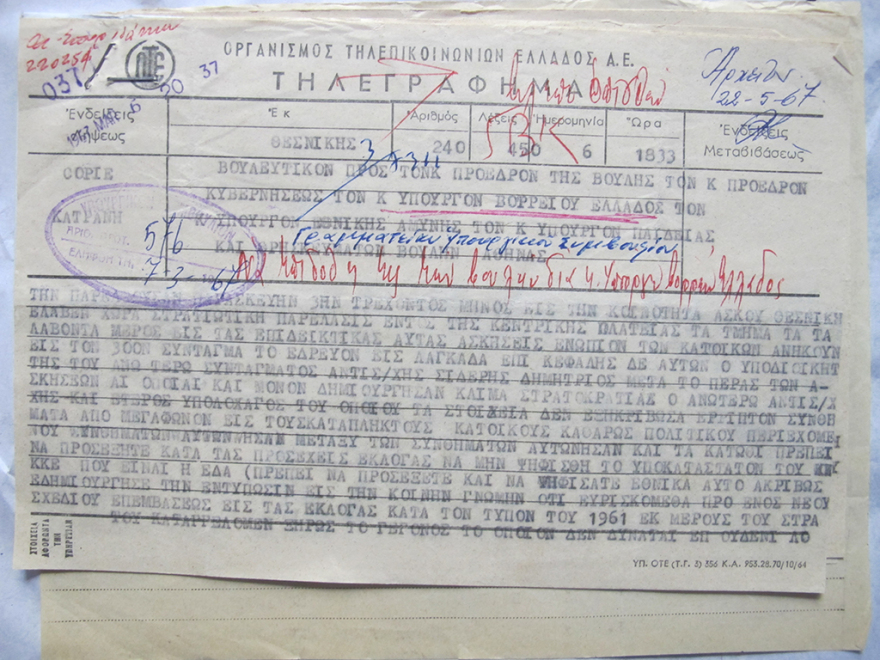 ΟΤΕ
ΟΡΓΑΝΙΣΜΟΣ ΤΗΛΕΠΙΚΟΙΝΩΝΙΩΝ ΕΛΛΑΔΟΣ Α.Ε.
ΤΗΛΕΓΡΑΦΗΜΑ
037
50 37
22-5-67
Ἐνδείξεις
Ἐκ
Ἀριθμός
Λέξεις
Ἡμερομηνία
Ὥρα
Ἐνδείξεις
Μεταβιβάσεως
ΘΕΣΝΙΚΗΣ
240
450
6
1833
COPIE
ΒΟΥΛΕΥΤΙΚΟΝ ΠΡΟΣ ΤΟΝΚ ΠΡΟΕΔΡΟΝ ΤΗΣ ΒΟΥΛΗΣ ΤΟΝ Κ ΠΡΟΕΔΡΟΝ
ΚΥΒΕΡΝΗΣΕΩΣ ΤΟΝ Κ ΥΠΟΥΡΓΟΝ ΒΟΡΡΕΙΟΥ ΕΛΛΑΔΟΣ ΤΟΝ
ΥΠΟΥΡΓΟΝ ΕΘΝΙΚΗΣ ΑΜΥΝΗΣ ΤΟΝ Κ ΥΠΟΥΡΓΟΝ ΠΑΙΔΕΙΑΣ
ΒΟΥΛΗΝ ΑΘΗΝΑΣ
576
7-3-67
Γραμματείαν Υπουργικού Συμβουλίου
ΠΑΡΑΣΚΕΥΗΝ 3ΗΝ ΤΡΕΧΟΝΤΟΣ ΜΗΝΟΣ ΕΙΣ ΤΗΝ ΚΟΙΝΟΤΗΤΑ ΑΣΚΟΥ ΘΕΣΝΙΚΗ
ΕΛΑΒΕΝ ΧΩΡΑ ΣΤΡΑΤΙΩΤΙΚΗ ΠΑΡΕΛΑΣΙΣ ΕΝΤΟΣ ΤΗΣ ΚΕΝΤΡΙΚΗΣ ΠΛΑΤΕΙΑΣ ΤΑ ΤΜΗΜΑ ΤΑ ΤΑ
ΛΑΒΟΝΤΑ ΜΕΡΟΣ ΕΙΣ ΤΑΣ ΕΠΙΔΕΙΚΤΙΚΑΣ ΑΥΤΑΣ ΑΣΚΗΣΕΙΣ ΕΝΩΠΙΟΝ ΤΩΝ ΚΑΤΟΙΚΩΝ ΑΝΗΚΟΥΝ
ΕΙΣ ΤΟΝ 300Ν ΣΥΝΤΑΓΜΑ ΤΟ ΕΔΡΕΥΟΝ ΕΙΣ ΛΑΓΚΑΔΑ ΕΠΙ ΚΕΦΑΛΗΣ ΔΕ ΑΥΤΩΝ Ο ΥΠΟΔΙΟΙΚΗΤ
ΤΗΣ ΤΟΥ ΑΝΩ ΤΕΡΩ ΣΥΝΤΑΓΜΑΤΟΣ ΑΝΤΙΣ/ΧΗΣ ΣΙΔΕΡΗΣ ΔΗΜΗΤΡΙΟΣ ΜΕΤΑ ΤΟ ΠΕΡΑΣ ΤΩΝ Α-
ΣΚΗΣΕΩΝ ΑΙ ΟΠΟΙΑΙ ΚΑΙ ΜΟΝΟΝ ΔΗΜΙΟΥΡΓΗΣΑΝ ΚΛΙΜΑ ΣΤΡΑΤΟΚΡΑΤΙΑΣ Ο ΑΝΩΤΕΡΩ ΑΝΤΙΣ/Χ
ΧΗΣ ΚΑΙ ΕΤΕΡΟΣ ΥΠΟΛΟΧΑΓΟΣ ΤΟΥ ΟΠΟΙΟΥ ΤΑ ΣΤΟΙΧΕΙΑ ΔΕΝ ΕΞΗΚΡΙΒΩΣΑ ΕΡΡΙΠΤΟΝ ΣΥΝΘΗ
ΜΑΤΑ ΑΠΟ ΜΕΓΑΦΩΝΟΝ ΕΙΣ ΤΟΥΣΚΑΤΑΠΛΗΚΤΟΥΣ ΚΑΤΟΙΚΟΥΣ ΚΑΘΑΡΩΣ ΠΟΛΙΤΙΚΟΥ ΠΕΡΙΕΧΟΜΕ
ΜΕΤΑΞΥ ΤΩΝ ΣΥΝΘΗΜΑΤΩΝ ΑΥΤΩΝΗΣΑΝ ΚΑΙ ΤΑ ΚΑΤΩΘΙ ΠΡΕΠΕΙ
ΝΑ ΠΡΟΣΕΞΕΤΕ ΚΑΤΑ ΤΑΣ ΠΡΟΣΕΧΕΙΣ ΕΚΛΟΓΑΣ ΝΑ ΜΗΝ ΨΗΦΙΣΘΗ ΤΟ ΥΠΟΚΑΤΑΣΤΑΤΟΝ ΤΟΥ
ΚΚΕ ΠΟΥ ΕΙΝΑΙ Η ΕΔΑ (ΠΡΕΠΕΙ ΝΑ ΠΡΟΣΕΞΕΤΕ ΚΑΙ ΝΑ ΨΗΦΙΣΑΤΕ ΕΘΝΙΚΑ ΑΥΤΟ ΑΚΡΙΒΩΣ
ΕΔΗΜΙΟΥΡΓΗΣΕ ΤΗΝ ΕΝΤΥΠΩΣΙΝ ΕΙΣ ΤΗΝ ΚΟΙΝΗΝ ΓΝΩΜΗΝ ΟΤΙ ΕΥΡΙΣΚΟΜΕΘΑ ΠΡΟ ΕΝΟΣ ΝΕΟΥ
ΣΧΕΔΙΟΥ ΕΠΕΜΒΑΣΕΩΣ ΕΙΣ ΤΑΣ ΕΚΛΟΓΑΣ ΚΑΤΑ ΤΟΝ ΤΥΠΟΝ ΤΟΥ 1961 ΕΚ ΜΕΡΟΥΣ ΤΟΥ ΣΤΡΑ
ΤΟΥ ΚΑΤΑΓΓΕΛΟΜΕΝ ΕΝΤΡΟΣ ΤΟ ΓΕΓΟΝΟΣ ΤΟ ΟΠΟΙΟΝ ΔΕΝ ΔΥΝΑΤΑΙ ΕΠ ΟΥΔΕΝΙ ΛΟ
ΣΤΟΙΧΕΙΑ
ΑΦΟΡΩΝΤΑ
ΤΗΝ
ΥΠΗΡΕΣΙΑΝ
ΥΠ. ΟΤΕ (Τ.Γ. 3) 356 Κ.Α. 953.28.70/10/64